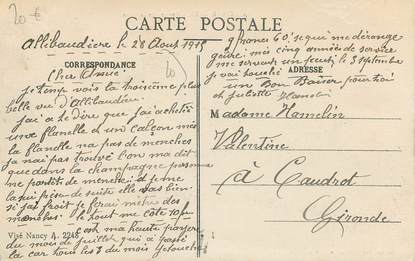 20 €
CARTE POSTALE
Allibaudière le 28 Aout 1915
CORRESPONDANCE
Cher Amie
je t'envoi vois la troisième plus
belle vu d'Allibaudière.
j'ai a te dire que j'ai acheté
une flanelle et un caleçon mes
la flanelle na pas de menches
ja nai pas trouvé l'on ma dit
que dans la champagne personne
ne portait de menche
si j'ai froit je ferai mètre des
menches le tout me côte 10f
c'est ma haute paye
du mois de juillet qui a passé
la car tous les 3 du mois je touche
9 francs 60 se qui me dérange
mes cinq années de service
me servent un peu le 3 septembre
je vai touché
ADRESSE
un Bon Baiser pour toi
et juliette Hamelin
Madame Hamelin
Valentine
à Caudrot
Gironde
Visé Nancy A. 2248